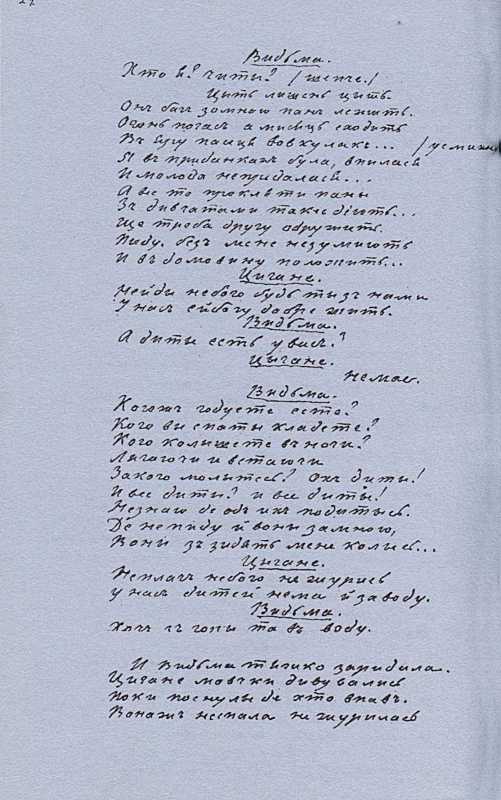 27
Видьма.
Хто в? читы? /шепче./
Цыть лишень цыть.
Онъ бач зомною панъ лежить.
Огонь погасъ а мисяць сходить
въ яру пасиця вовкулакъ... /усмихн
Я въ приданкахъ була, впилась
И молода непридалась...
А все то прокляти паны
Зъ дивчатами такъ діють...
Ще треба другу одружить.
Пиду. безъ мене незумиють
И въ домовину положить...
Цигане.
Нейди небого будь ты зъ нами
У насъ ейбогу добре жить.
Видьма.
А диты есть у васъ?
Цыгане.
Немає.
Видьма.
Когожъ годуете єсте?
Кого ви спаты кладете?
Кого колишете въ ночи?
Лягаючи и встаючи
Закого молытесь? Охъ диты!
И все диты? и все диты!
Незнаю де одъ ихъ подитысь.
Де непиду й воны замною,
Вони зъзидять мене колись...
Цигане.
Неплачъ небого не журись
У насъ дитей нема й заводу.
Видьма.
Хочъ зъ горы та въ воду.
И Видьма тяжко заридала.
Цигане мовчки дивувались
Поки поснулы де хто впавъ.
Вонажъ неспала не журилась